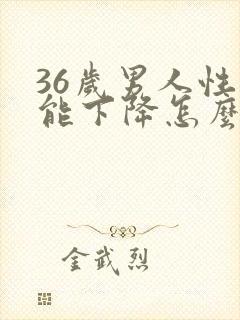 36歲男人性
能下降怎麼
金武烈